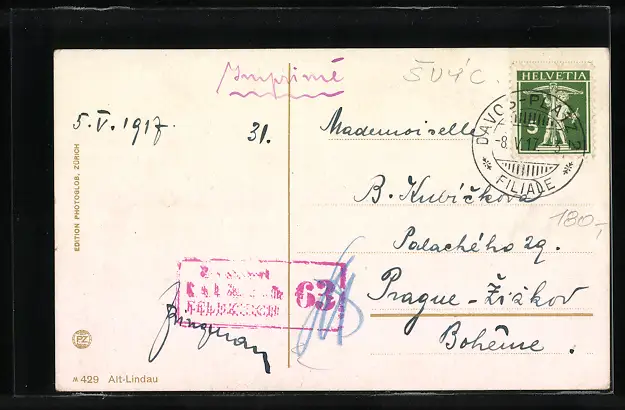 Imprimé
ŠVÝC.
HELVETIA
5
5.V.1917.
31.
Mademoiselle
DAVOS-PLATZ 2
-8.V.17.
FILIALE
B. Kubíčková
180,-
Palackého 29.
Prague-Žižkov
Bohême.
63
EDITION PHOTOGLOB, ZÜRICH
PZ
M 429 Alt-Lindau